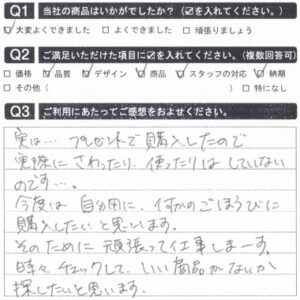 Q1 当社の商品はいかがでしたか？（☑を入れてください。）
☑大変よくできました □よくできました □頑張りましょう
Q2 ご満足いただけた項目に☑を入れてください。（複数回答可）
□価格 ☑品質 ☑デザイン ☑商品 ☑スタッフの対応 ☑納期
□その他（ ）□特になし
Q3 ご利用にあたってご感想をおよせください。
実は… プレゼントで購入したので
実際に さわったり、使ったりは していない
のです…。
今度は 自分用に、何かのごほうびに
購入したいと思います。
そのために 頑張って仕事しまーす。
時々 チェックして、いい商品がないか
探したいと思います。